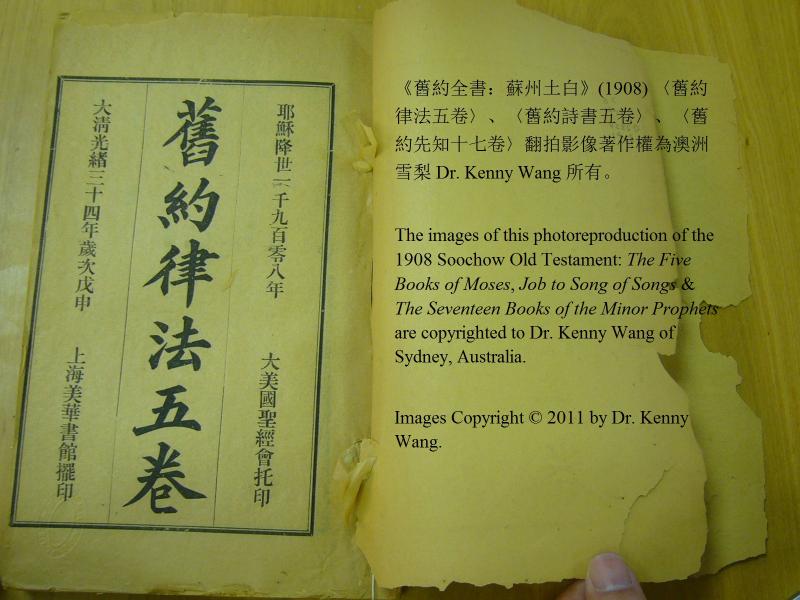 耶穌降世一千九百零八年
大美國聖經會托印
舊約律法五卷
大清光緒三十四年歲次戊申
上海美華書館擺印
《舊約全書：蘇州土白》(1908)〈舊約
律法五卷〉、〈舊約詩書五卷〉、〈舊
約先知十七卷〉翻拍影像著作權為澳洲
雪梨 Dr. Kenny Wang 所有。
The images of this photoreproduction of the
1908 Soochow Old Testament: The Five
Books of Moses, Job to Song of Songs &
The Seventeen Books of the Minor Prophets
are copyrighted to Dr. Kenny Wang of
Sydney, Australia.
Images Copyright © 2011 by Dr. Kenny
Wang.